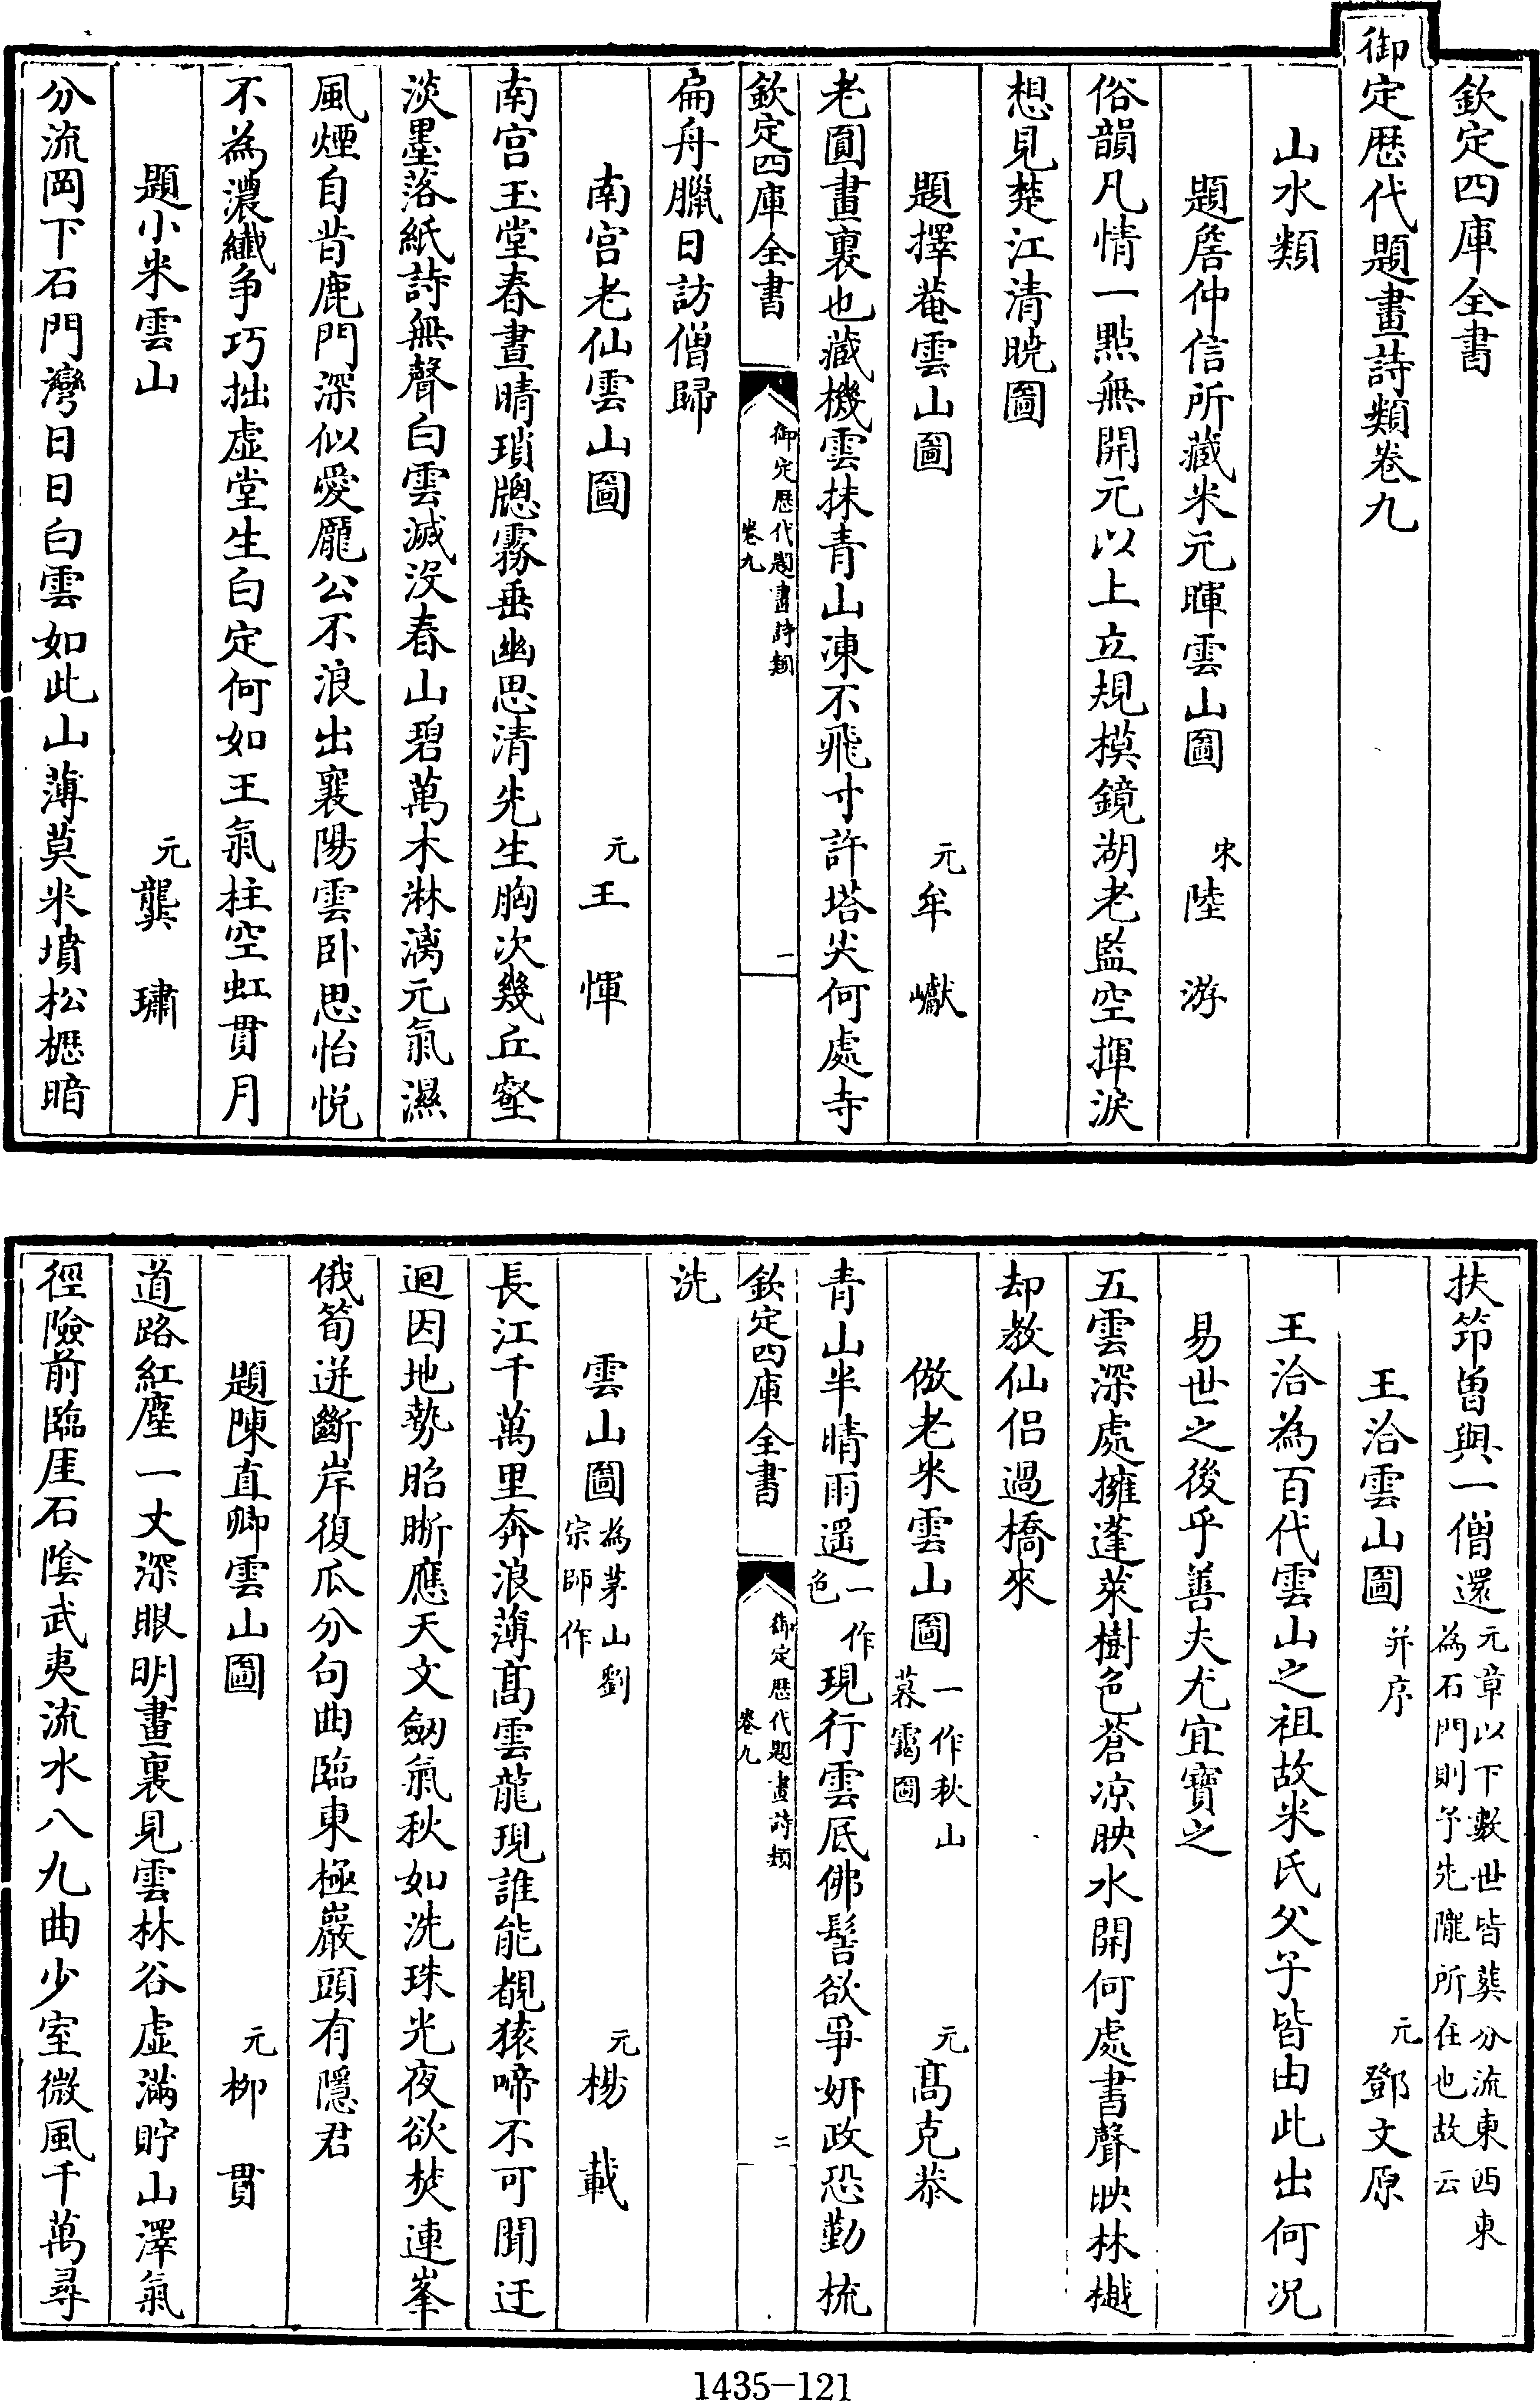 欽定四庫全書
御定歷代題畫詩類卷九
山水類
題詹仲信所藏米元暉雲山圖　宋陸游
俗韻凡情一點無開元以上立規模鏡湖老監空揮淚
想見楚江清曉圖
題擇菴雲山圖　元牟巘
老圓畫裏也藏機雲抹青山凍不飛寸許塔尖何處寺
欽定四庫全書　御定歷代題畫詩類 卷九　一
扁舟臘日訪僧歸
南宫老仙雲山圖　元王惲
南宫玉堂春晝晴瑣牕霧垂幽思清先生胸次幾丘壑
淡墨落紙詩無聲白雲滅没春山碧萬木淋漓元氣濕
風煙自昔鹿門深似愛龐公不浪出襄陽雲卧思怡悦
不為濃纎争巧拙虛堂生白定何如王氣柱空虹貫月
題小米雲山　元龔璛
分流岡下石門灣日日白雲如此山薄莫米墳松櫪暗
扶笻曽與一僧還元章以下數世皆葬分流東西東為石門則予先隴所在也故云
王洽雲山圖并序　元鄧文原
王洽為百代雲山之祖故米氏父子皆由此出何况
易世之後乎善夫尤宜寶之
五雲深處擁蓬萊樹色蒼凉映水開何處書聲映林樾
却教仙侣過橋來
倣老米雲山圖一作秋山暮靄圖　元髙克恭
青山半晴雨遥一作色現行雲底佛髻欲爭妍政恐勤梳
欽定四庫全書　御定歷代題畫詩類 卷九　二
洗
雲山圖為茅山劉宗師作　元楊載
長江千萬里奔浪薄髙雲龍現誰能覩猿啼不可聞迂
迴因地勢昭晰應天文劒氣秋如洗珠光夜欲焚連峯
俄筍迸斷岸復瓜分句曲臨東極巖頭有隱君
題陳直卿雲山圖　元柳貫
道路紅塵一丈深眼明畫裏見雲林谷虛滿貯山澤氣
徑險前臨厓石陰武夷流水八九曲少室微風千萬尋
1435-121